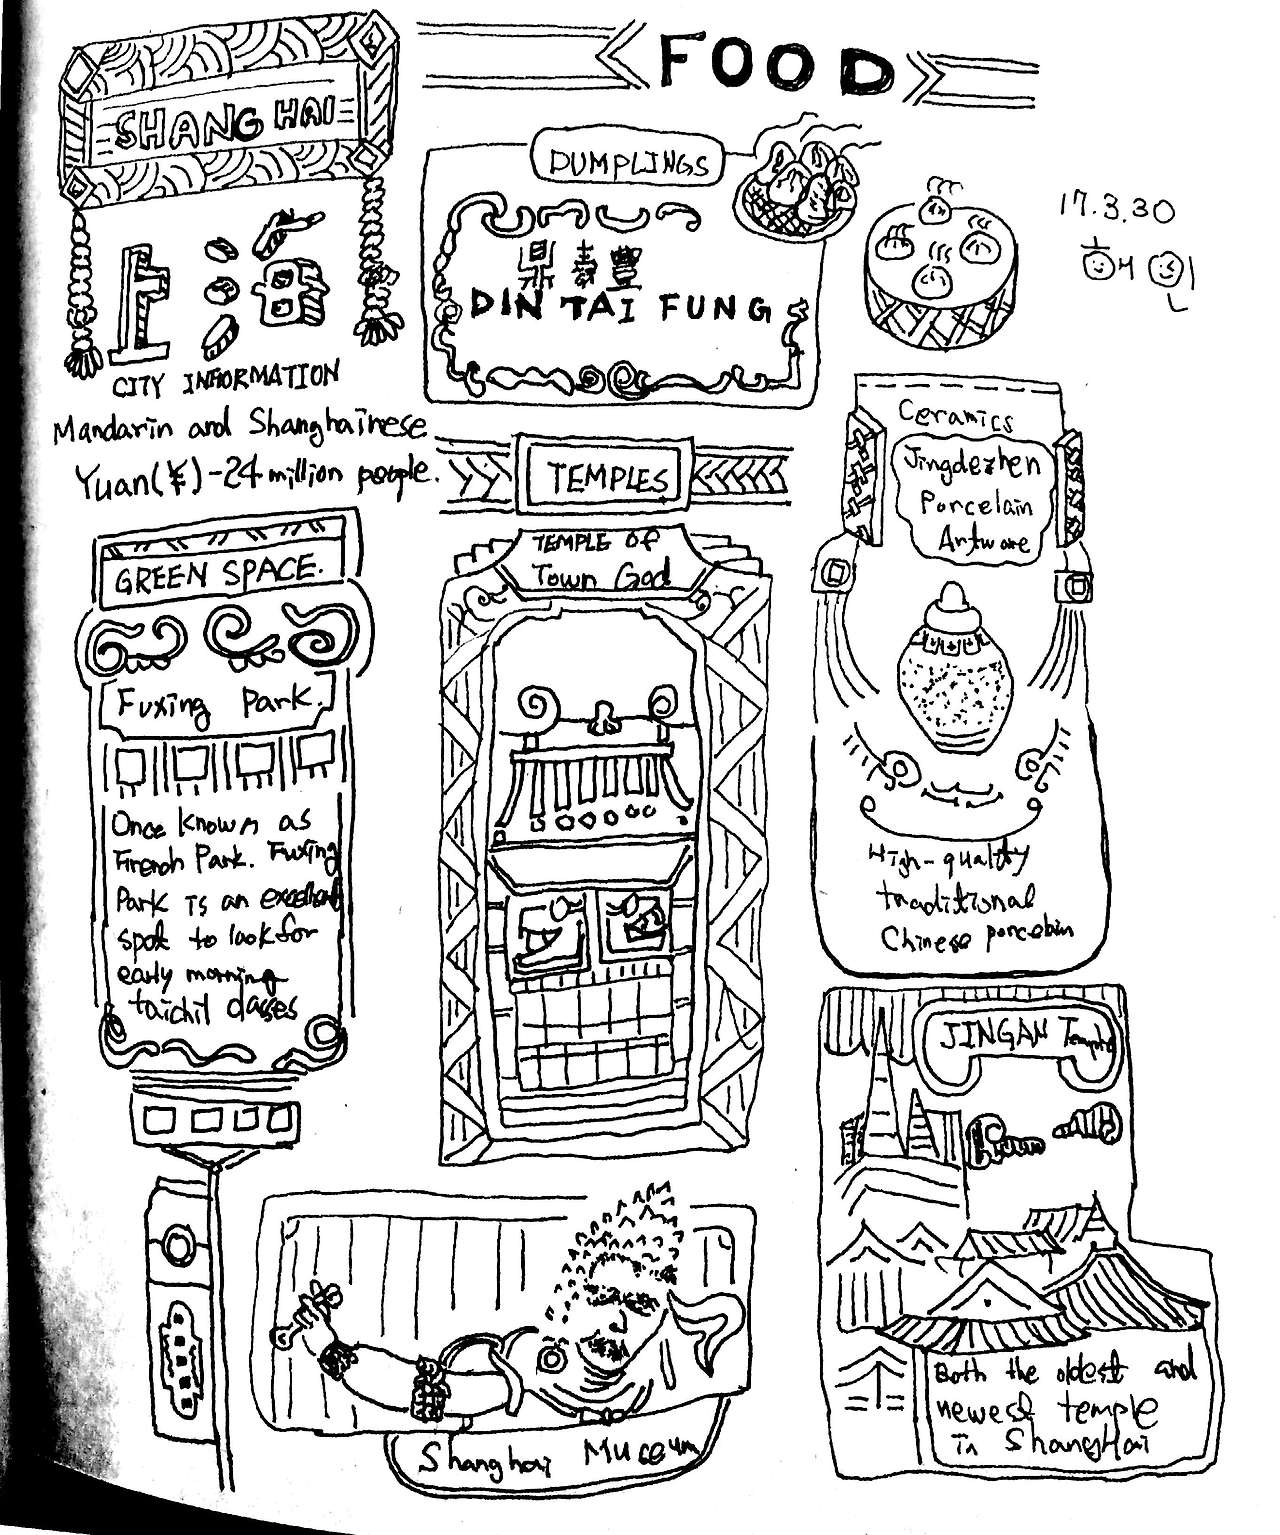 SHANGHAI
上海
CITY INFORMATION
Mandarin and Shanghainese
Yuan(¥)-24 million people.
FOOD
DUMPLINGS
鼎泰豐
DIN TAI FUNG
17.3.30
혜인
TEMPLES
TEMPLE OF
Town God
Ceramics
Jingdezhen
Porcelain
Artware
High-quality
traditional
Chinese porcelain
GREEN SPACE.
Fuxing Park.
Once known as
French Park. Fuxing
Park is an excellent
spot to look for
early morning
taichil classes
JINGAN Temple
Both the oldest and
newest temple
in ShangHai
Shanghai Museum